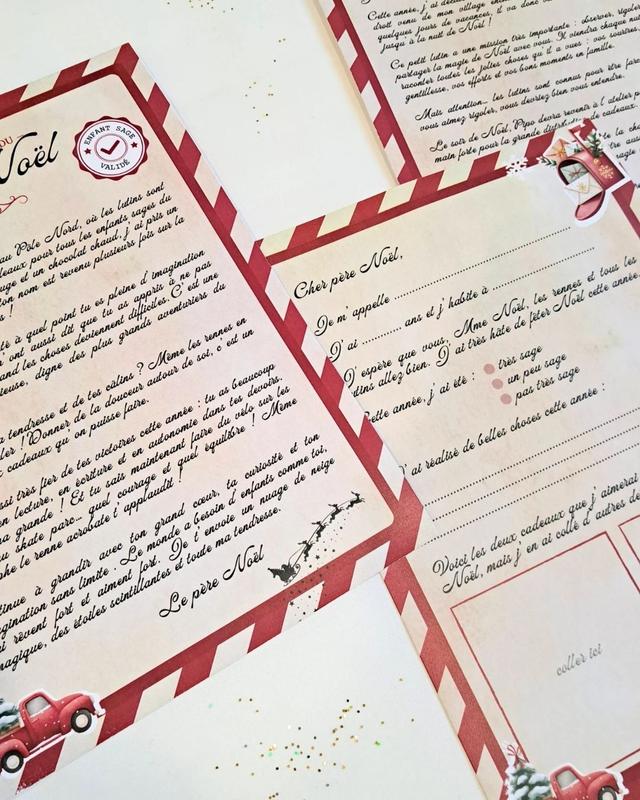 DU
Noël
ENFANT SAGE
VALIDÉ
au Pôle Nord, où les lutins sont
deaux pour tous les enfants sages du
uge et un chocolat chaud, j'ai pris un
ton nom est revenu plusieurs fois sur la
s !
te à quel point tu es pleine d'imagination
m'ont aussi dit que tu as appris à ne pas
and les choses deviennent difficiles. C'est une
ieuse, digne des plus grands aventuriers du
a tendresse et de tes câlins ? Même les rennes en
ler ! Donner de la douceur autour de soi, c'est un
x cadeaux qu'on puisse faire.
ssi très fier de tes victoires cette année : tu as beaucoup
en lecture, en écriture et en autonomie dans tes devoirs.
a grande ! Et tu sais maintenant faire du vélo sur les
u skate parc... quel courage et quel équilibre ! Même
phe le renne acrobate t'applaudit !
tinue à grandir avec ton grand cœur, ta curiosité et ton
agination sans limite. Le monde a besoin d'enfants comme toi,
i rêvent fort et aiment fort. Je t'envoie un nuage de neige
magique, des étoiles scintillantes et toute ma tendresse.
Le père Noël
Cette année, j'ai
droit venu de mon village
quelques jours de vacances, il va donc
jusqu'à la nuit de Noël.
Ce petit lutin a une mission très importante : observer, rigoler
partager la magie de Noël avec vous. Il viendra chaque
raconter toutes les jolies choses qu'il a vues : vos sourires
gentillesse, vos efforts et vos bons moments en famille.
Mais attention... les lutins sont connus pour être
vous aimez rigoler, vous devriez bien vous entendre.
Le soir de Noël, Pipo devra revenir à l'atelier
main forte pour la grande distribution de cadeaux.
Cher père Noël,
Je m'appelle
J'ai ans et j'habite à
J'espère que vous, Mme Noël, les rennes et tous les
lutins allez bien. J'ai très hâte de fêter Noël cette année
Cette année, j'ai été :
très sage
un peu sage
pas très sage
J'ai réalisé de belles choses cette année :
Voici les deux cadeaux que j'aimerai
Noël, mais j'en ai collé d'autres
coller ici